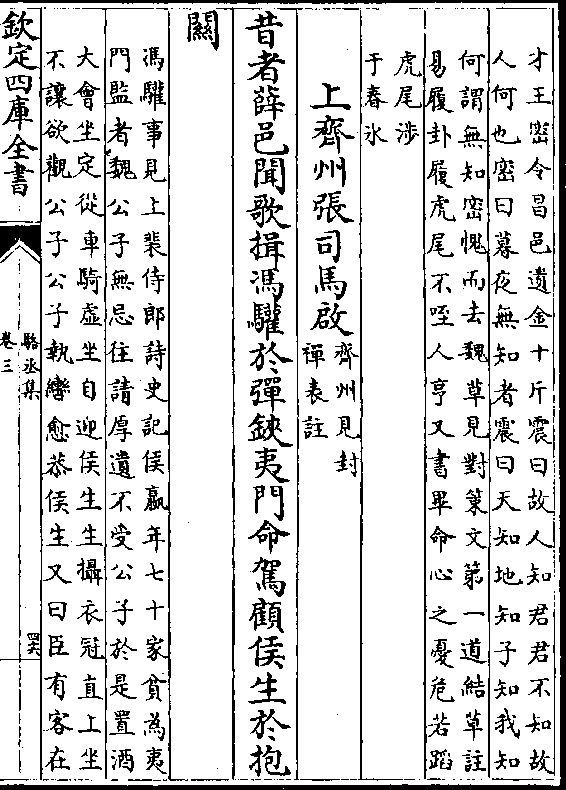 才王密令昌邑遺金十斤震曰故人知君君不知故
人何也密曰暮夜無知者震曰天知地知子知我知
何謂無知密愧而去魏草見對策文第一道結草註
易履卦履虎尾不咥人亨又書畢命心之憂危若蹈
虎尾涉
于春氷
上齊州張司馬啟
齊州見封
禪表註
昔者薛邑聞歌揖馮驩於彈鋏夷門命駕顧侯生於抱
關
馮驩事見上裴侍郎詩史記侯嬴年七十家貧為夷
門監者魏公子無忌往請厚遺不受公子於是置酒
大會坐定從車騎虛坐自迎侯生生攝衣冠直上坐
不讓欲觀公子公子執轡愈恭侯生又曰臣有客在
欽定四庫全書
駱丞集
卷三